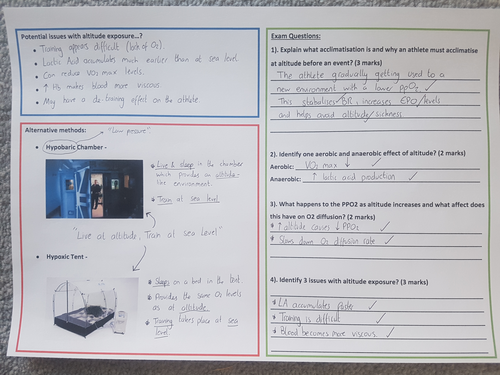 Potential issues with altitude exposure…?
• Training appears difficult (lack of O2).
• Lactic Acid accumulates much earlier than at sea level
• Can reduce VO2 max levels.
• ↑ Hb makes blood more viscous
• May have a de-training effect on the athlete.
Alternative methods:
"Low pressure"
• Hypobaric Chamber -
Live & sleep in the chamber
which provides an altitude-
like environment.
Train at sea level
"Live at altitude, Train at sea level"
• Hypoxic Tent -
Sleeps on a bed in the tent
Provides the same O2 levels
as at altitude
Training takes place at sea
level
Exam Questions:
1). Explain what acclimatisation is and why an athlete must acclimatise
at altitude before an event? (3 marks)
The athlete gradually getting used to a
new environment with a lower ppO2.
This stabalises BR, increases EPO levels
and helps avoid altitude sickness
2). Identify one aerobic and anaerobic effect of altitude? (2 marks)
Aerobic: VO2 max ↓ ✓
Anaerobic: ↑ lactic acid production ✓
3). What happens to the PPO2 as altitude increases and what affect does
this have on O2 diffusion? (2 marks)
* ↑ altitude causes ↓ PPO2 ✓
* Slows down O2 diffusion rate ✓
4). Identify 3 issues with altitude exposure? (3 marks)
* LA accumulates faster ✓
* Training is difficult ✓
* Blood becomes more viscous. ✓